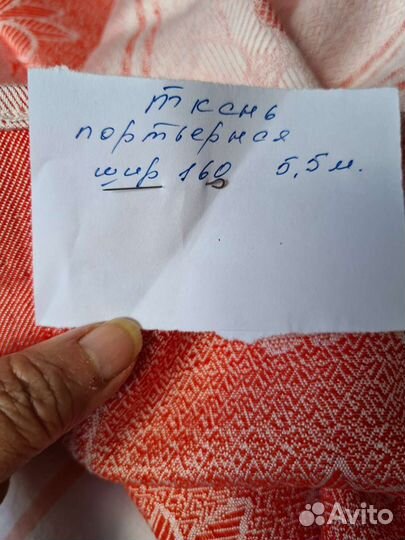 ткань
портьерная
шир 160 5,5 м.
Avito